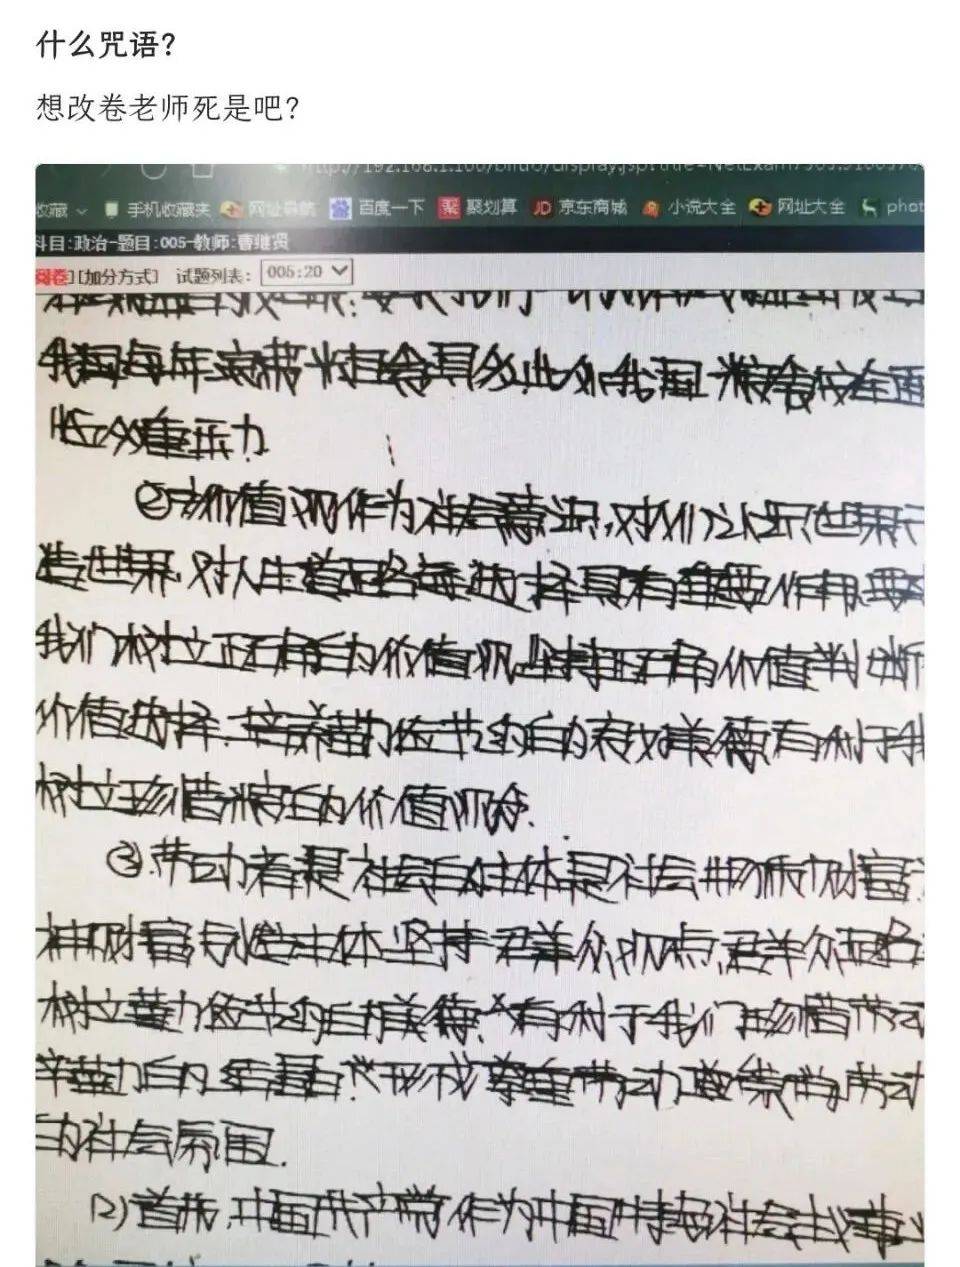 什么咒语?
想改卷老师死是吧?
收藏 手机收藏夹 网址导航 百度一下 聚划算 JD 京东商城 小说大全 网址大全 phot
科目:政治-题目:005-教师:曹继贤
阅卷][加分方式] 试题列表: 005:20
我国每年浪费粮食多,此外我国粮食存在
众重压力
②价值观作为社会意识,对人们认识世界
造世界,对人生道路的选择具有重要作用,要
我们树立正确的价值观,坚持正确的价值判断
价值选择,培养勤俭节约的传统美德有利于我
树立珍惜粮食的价值观念.
③劳动者是社会的主体是社会物质财富
神财富创造主体,坚持群众观点,群众路
树立勤俭节约的美德,有利于我们珍惜劳动
辛勤的结晶,形成尊重劳动 崇尚劳动
的社会氛围.
(2)首先,中国共产党作为中国特色社会主义事业